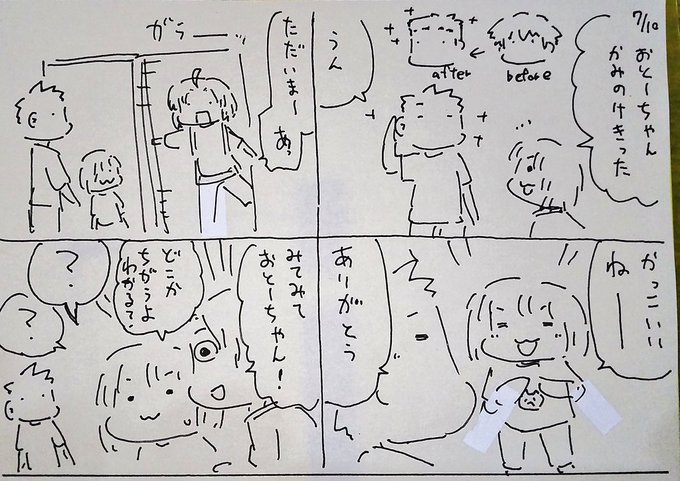 7/10
おとーちゃん
かみのけきった
before
after
うん
かっこいい
ねーー
ありがとう
がらーーッ
ただいまー
あっ
みてみて
おとーちゃん！
どこか
ちがうよ
わかるて？
？
？